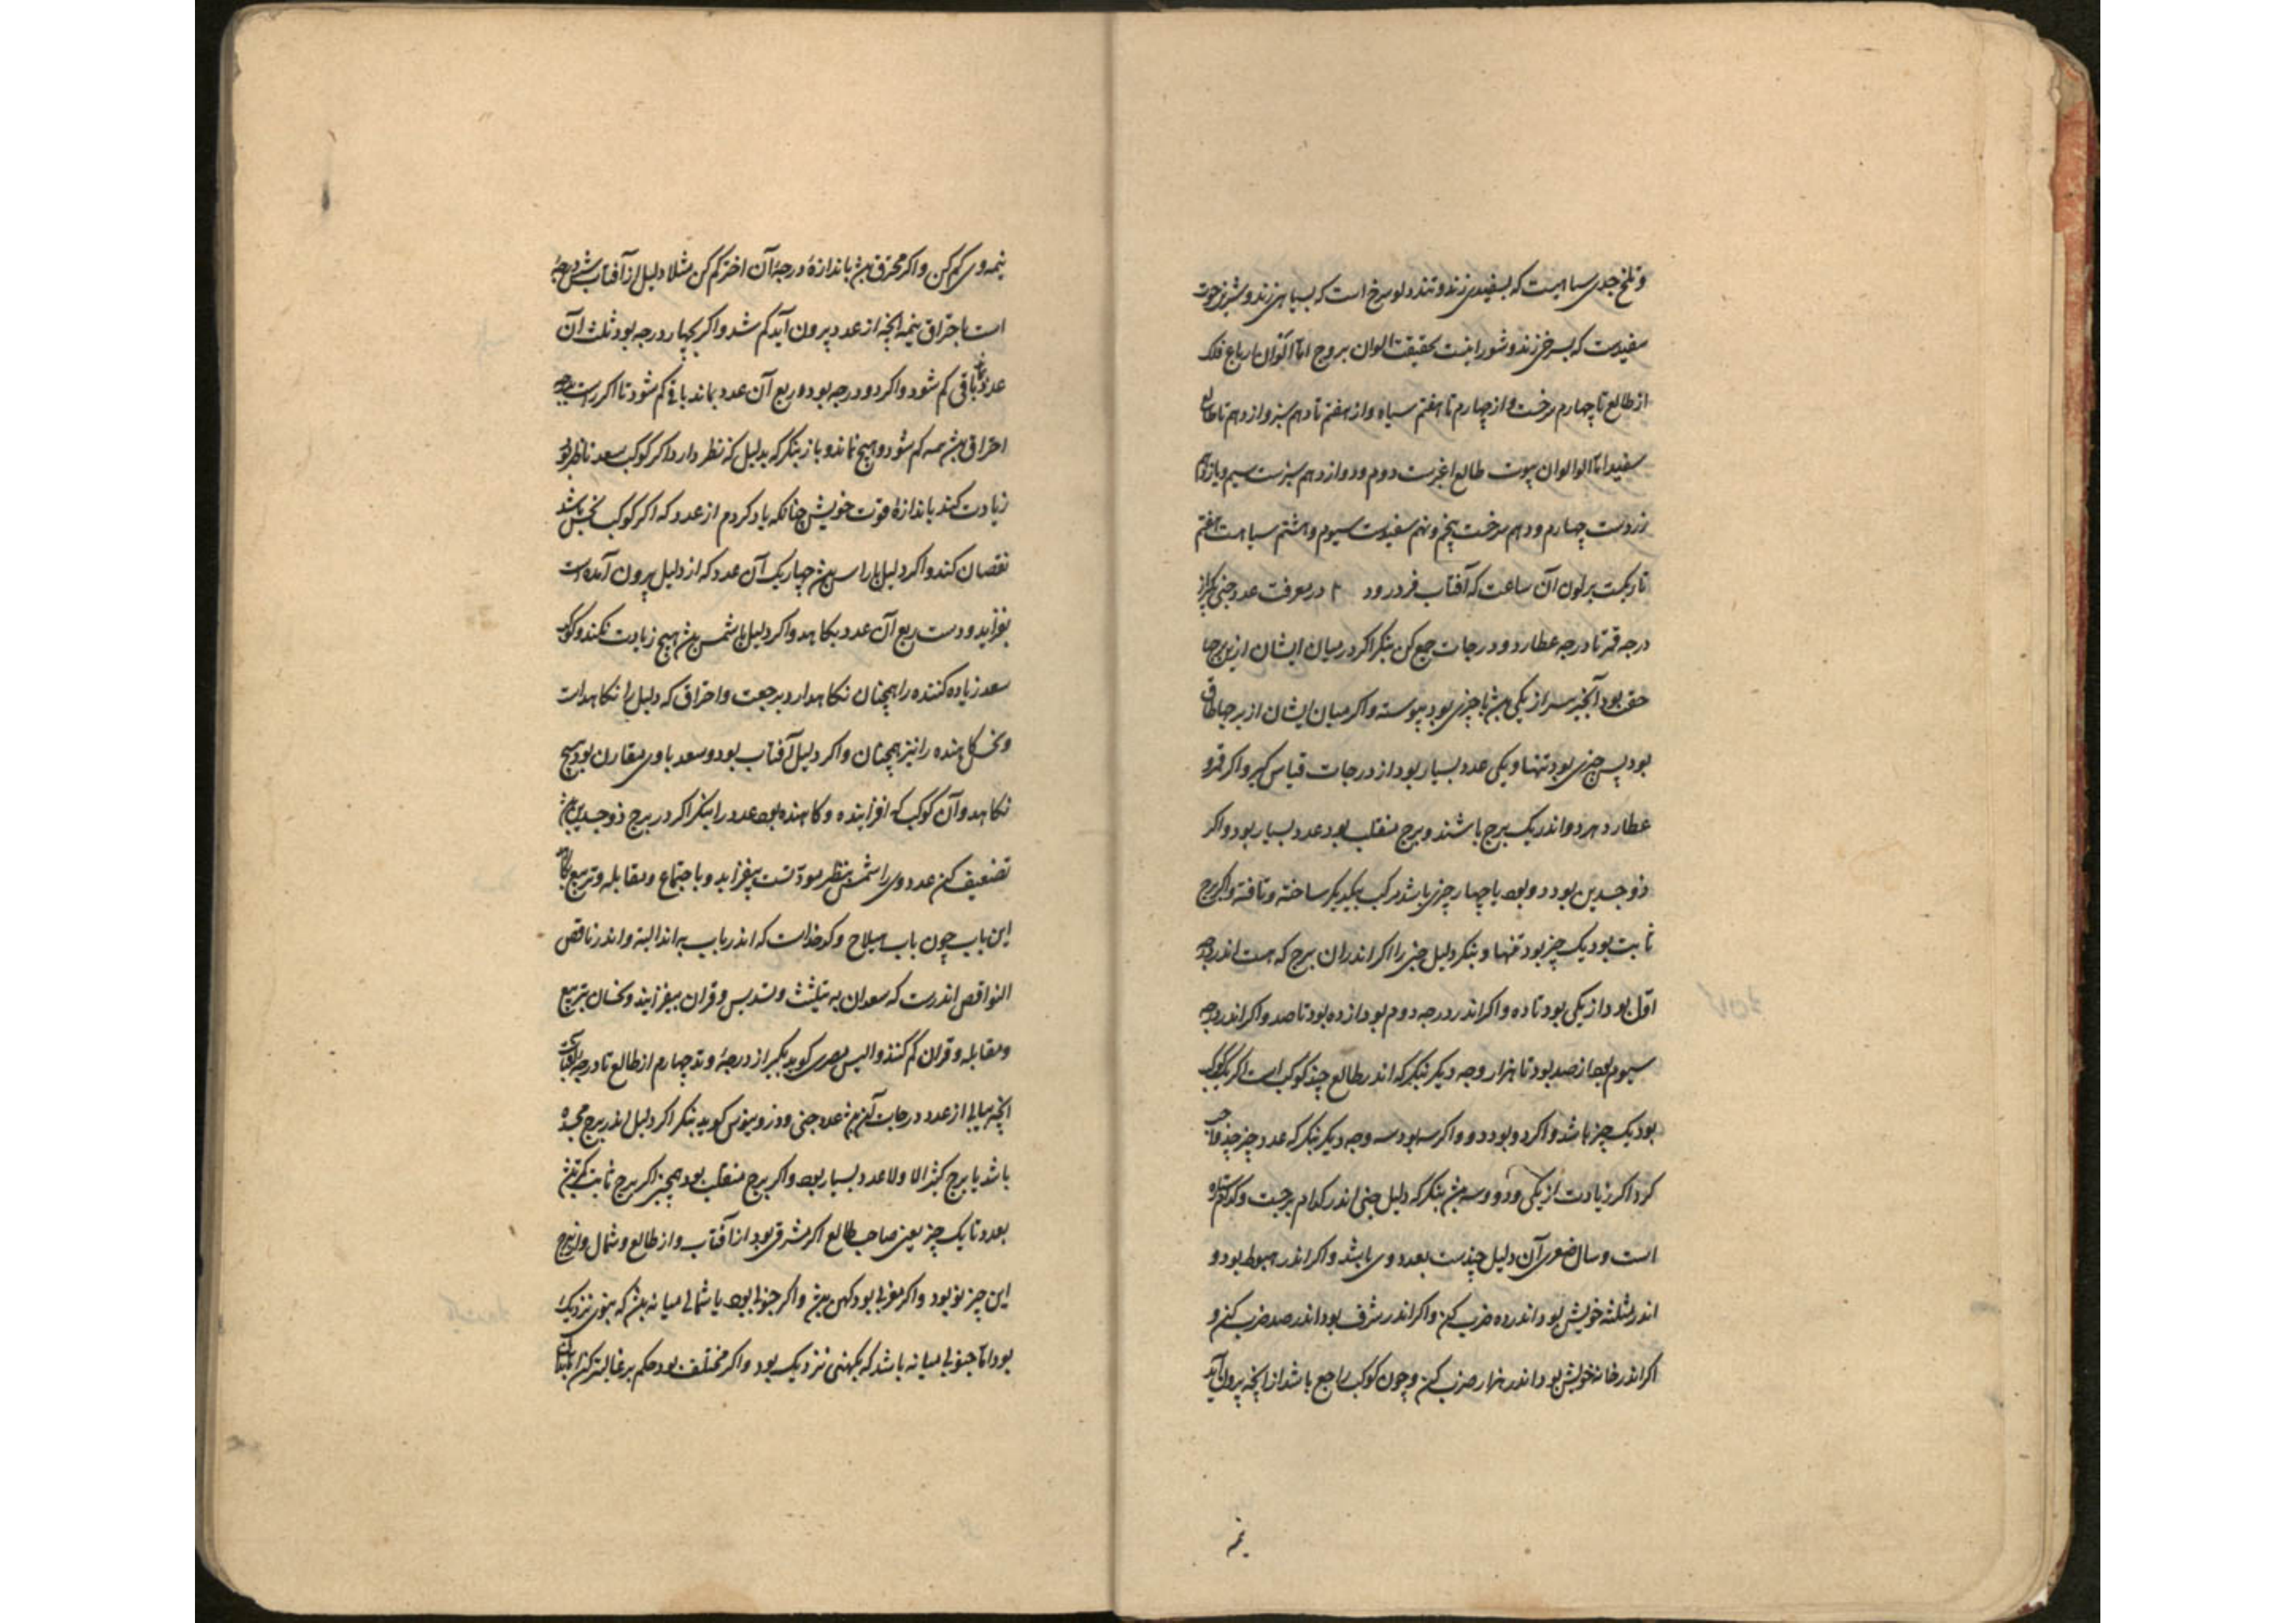 و تلخ جدی سیاهیست که بسفیدی زند و تند دلو سرخ است که بسیاهی زند و شیرین حوت
سفیدست که بسرخی زند و شور اینست حقیقت الوان بروج اما الوان ارباع فلک
از طالع تا چهارم سرخست و از چهارم تا هفتم سیاه و از هفتم تا دهم سبز و از دهم تا طالع
سفید اما الوان بیوت طالع اغبرست دوم و دوازدهم سبزست سیم و یازدهم
زردست چهارم و دهم سرخست پنجم و نهم سفیدست سیوم و هشتم سیاهست هفتم
تاریکست برلون آن ساعت که آفتاب فرو رود در معرفت عدد خبی بگیر از
درجه قمر تا درجه عطارد و درجات جمع کن بنگر اگر در میان ایشان ازین برجها
جفت بود آنچه سر از یکی بیش یا چیزی بود پیوسته و اگر میان ایشان از برجها طاق
بود پس چیزی بود تنها و یکی عدد بسیار بود از درجات قیاس گیر و اگر قمر و
عطارد هر دو اندر یک برج باشند و برج منقلب بود عدد بسیار بود و اگر
ذو جسدین بود دو بود یا چهار چیزی باشد مرکب بیکدیگر ساخته و تافته و اگر برج
ثابت بود یک چیز بود تنها و بنگر دلیل خبی را اگر اندران برج که هست اندر وجه
اول بود از یکی بود تا ده و اگر اندر درجه دوم بود از ده بود تا صد و اگر اندر وجه
سیوم بود از صد بود تا هزار وجه دیگر بنگر که اندر طالع چند کوکب است اگر یک کوکب
بود یک چیز باشد و اگر دو بود دو و اگر سه بود سه وجه دیگر بنگر که عدد چیز چند واجب
کرد اگر زیادت از یکی و دو و سه بیش بنگر که دلیل خبی اندر کدام برجست و کدام ستاره
است و سال صغری آن دلیل چندست بعدد وی باشد و اگر اندر هبوط بود و
اندر مثلثه خویش بود اندر ده ضرب کن و اگر اندر شرف بود اندر صد ضرب کن و
اگر اندر خانه خویش بود اندر هزار ضرب کن و چون کوکب راجع باشد از آنچه بیرون آید
نیمه
نیمه وی کم کن و اگر محترق بیش باندازهٔ درجهٔ آن اختر کم کن مثلا دلیل از آفتاب شش درجه
است باحتراق نیمه آنچه از عدد بیرون آید کم شد و اگر بچهار درجه بود ثلث آن
عدد باقی کم شود و اگر دو درجه بود و ربع آن عدد بماند باقی کم شود تا اگر راست بدرجه
احتراق بیش همه کم شود و هیچ نماند و باز بنگر که بدلیل که نظر دارد اگر کوکب سعد ناظر بود
زیادت کند باندازهٔ قوت خویش چنانکه یاد کردم از عدد که اگر کوکب نحس باشد
نقصان کند و اگر دلیل با راس بیش چهاریک آن عدد که از دلیل بیرون آمده است
بفزاید و دست ربع آن عدد بکاهد و اگر دلیل با شمس بیش هیچ زیادت نکند و کوکب
سعد زیاده کننده را همچنان نکاهدارد برجعت و احتراق که دلیل را نکاهداشت
و نحس کاهنده را نیز همچنان و اگر دلیل آفتاب بود و سعد باوی مقارن بود هیچ
نکاهد و آن کوکب که افزاینده و کاهنده بود عدد را بنگر اگر در برج ذو جسدین بیش
تضعیف کن عدد وی را شمس بنظر مودتست بیفزاید و با جتماع و مقابله و تربیع بکاهد
این باب چون باب هیلاج و کدخداست که اندر باب به اندا البته و اندر ناقص
النواقص اندرست که سعدان به تثلیث و تسدیس و قران بیفزایند و نحسان بتربیع
و مقابله و قران کم کنند و الیس بصری کوید بگیر از درجهٔ وتد چهارم از طالع تا درجه آفتاب
آنچه بیابی از عدد درجات آن بیش عدد خبی و وزو سیوس کوید بنگر اگر دلیل اندر برج مجسده
باشد یا برج کثیر الاولاد عدد بسیار بود و اگر برج منقلب بود همچنین اگر برج ثابت کمترین
بعدد تا یک چیز یعنی صاحب طالع اگر مشرقی بود از آفتاب و از طالع و شمال
این چیز نو بود و اگر مغربی بود کهن بیش و اگر جنوبی بود یا شمالی میانه بیش که بنوی نزدیک
بود اما جنوبی میانه باشد که بکهنی نزدیک بود و اگر مختلف بود حکم بر غالبتر کن